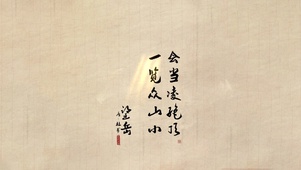 会当凌绝顶
一览众山小
望岳